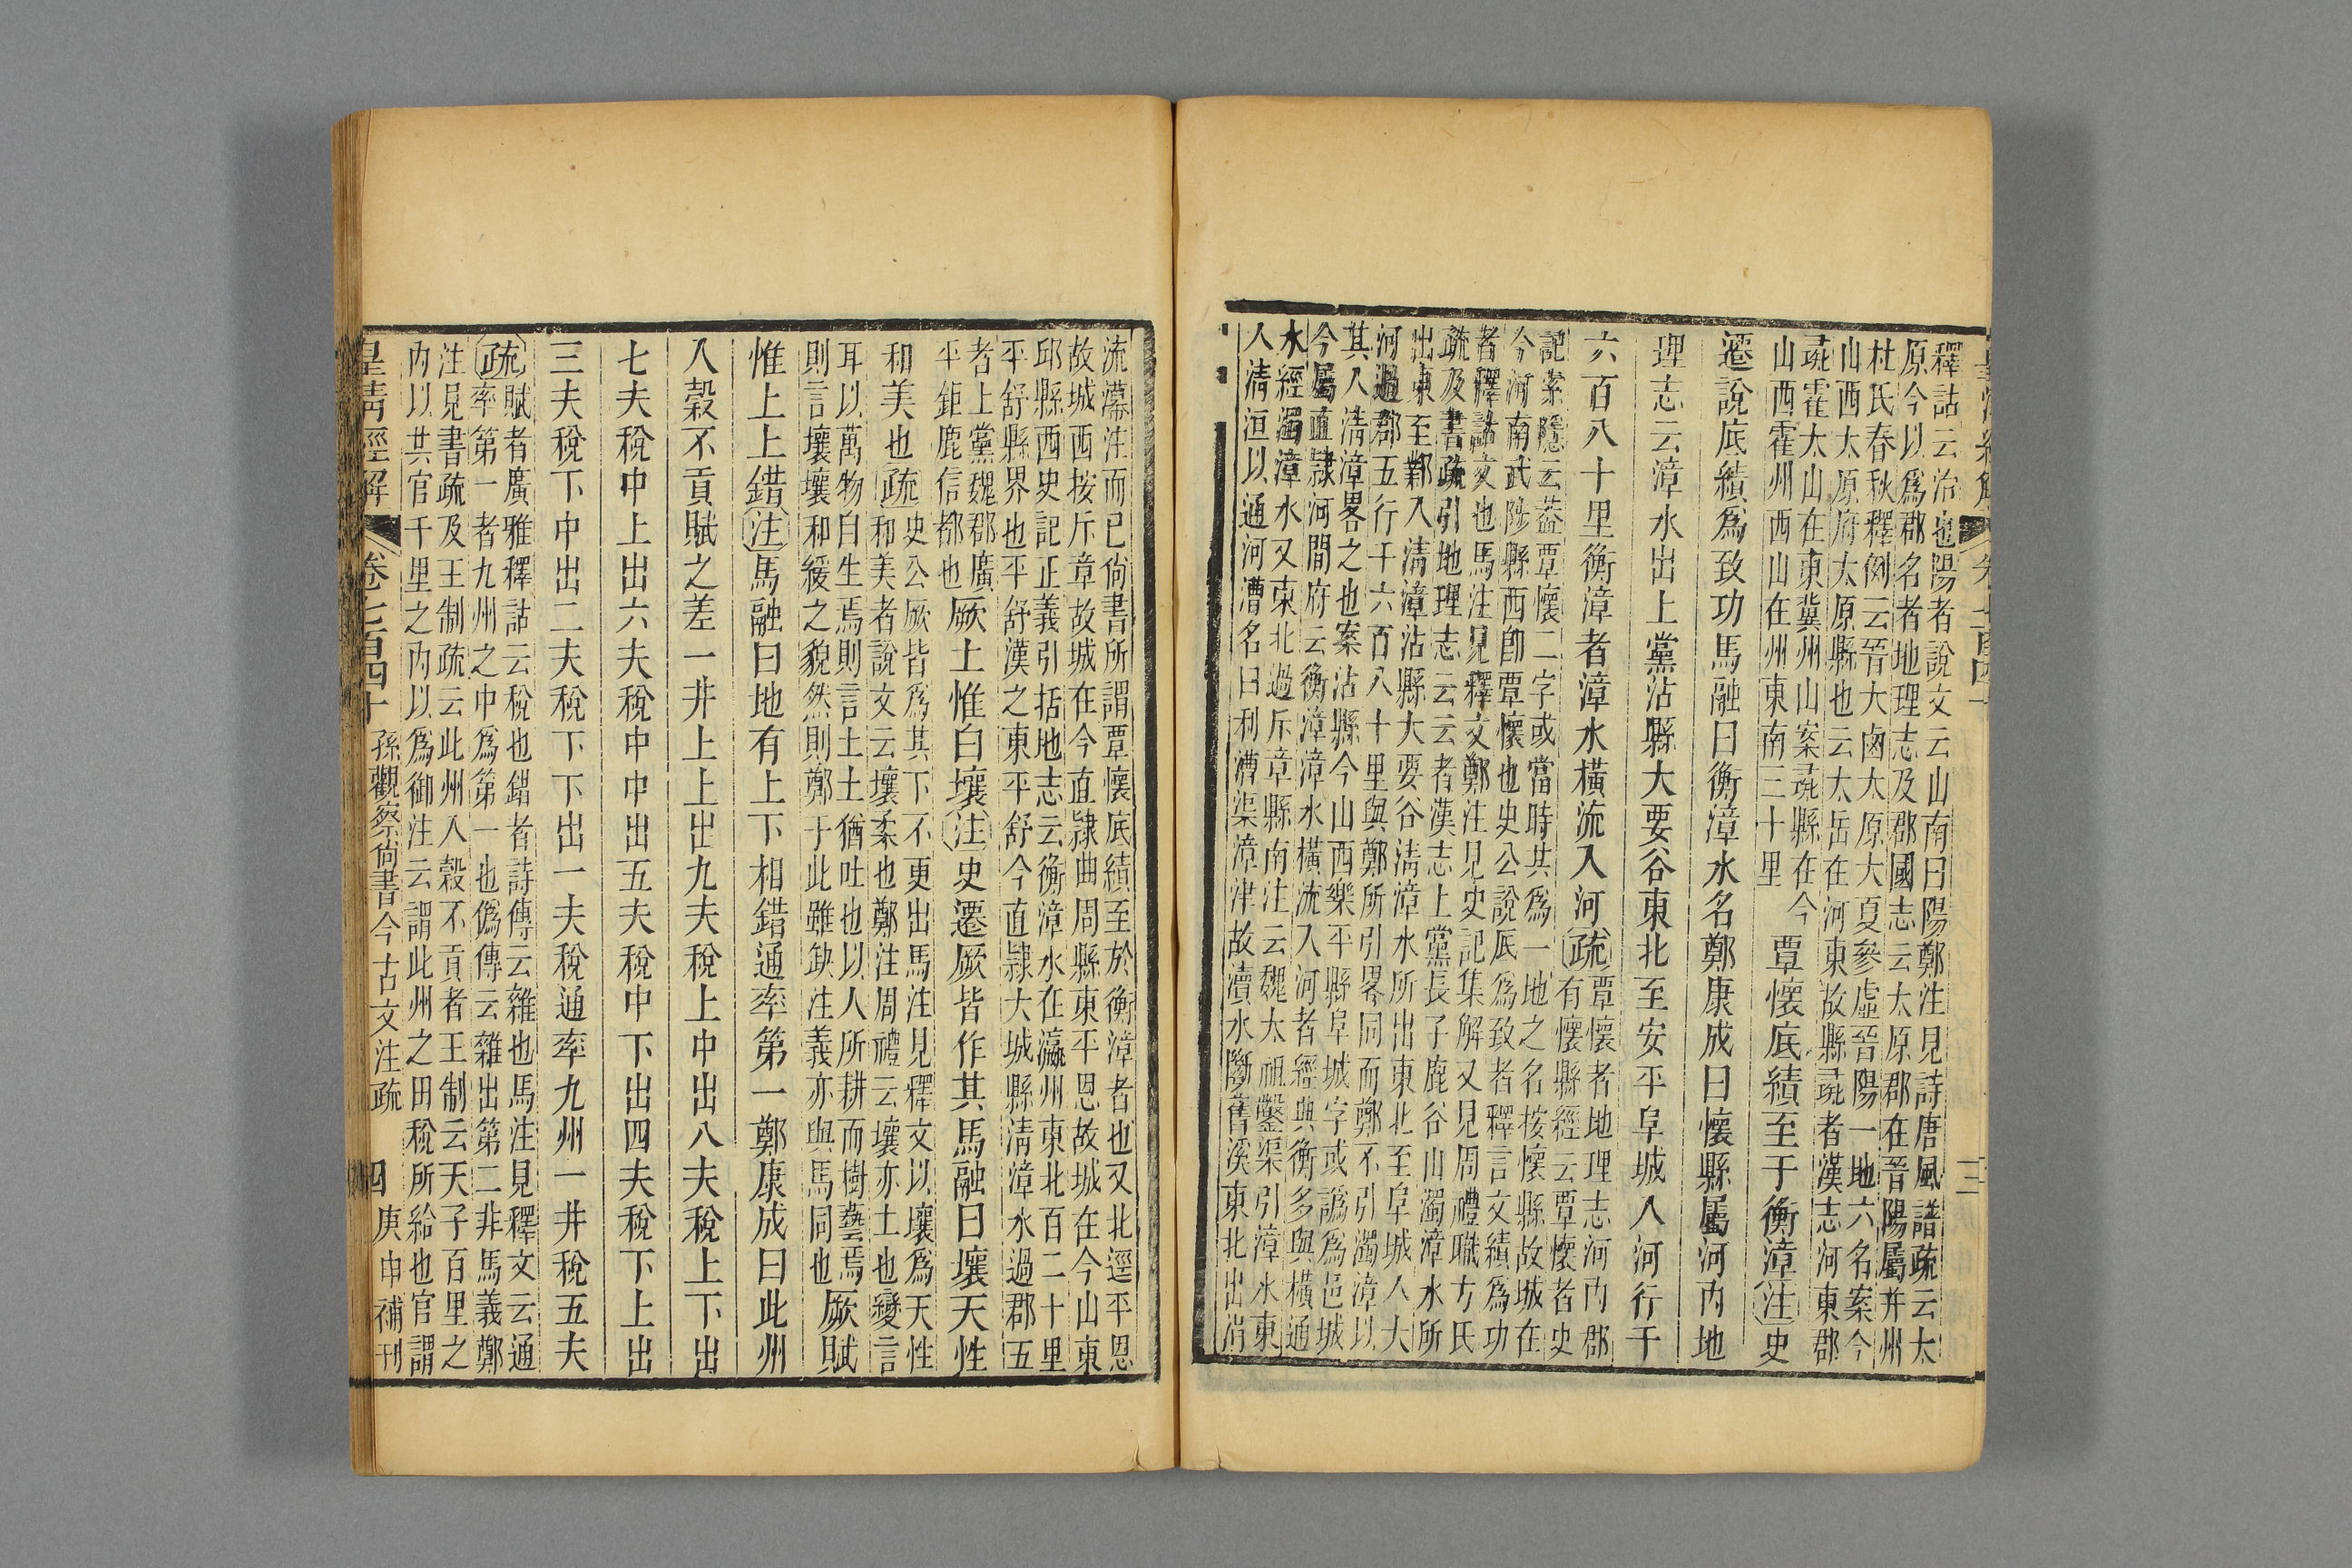 釋詁云治也陽者說文云山南曰陽鄭注見詩唐風譜疏云太
原今以爲郡名者地理志及郡國志云太原郡在晉陽屬并州
杜氏春秋釋例云晉大鹵太原大夏參虛晉陽一地六名案今
山西太原府太原縣也云太岳在河東故縣彘者漢志河東郡
彘霍太山在東冀州山案彘縣在今
山西霍州西山在州東南三十里
覃懷底績至于衡漳注史
遷說底績爲致功馬融曰衡漳水名鄭康成曰懷縣屬河內地
理志云漳水出上黨沾縣大要谷東北至安平阜城入河行千
六百八十里衡漳者漳水橫流入河疏
覃懷者地理志河內郡
有懷縣經云覃懷者史
記索隱云蓋覃懷二字或當時其爲一地之名按懷縣故城在
今河南武陟縣西卽覃懷也史公說厎爲致者釋言文績爲功
者釋詁文也馬注見釋文鄭注見史記集解又見周禮職方氏
疏及書疏引地理志云云者漢志上黨長子鹿谷山濁漳水所
出東至鄴入清漳沾縣大要谷清漳水所出東北至阜城入大
河過郡五行千六百八十里與鄭所引畧同而鄭不引濁漳以
其入清漳畧之也案沾縣今山西樂平縣阜城字或譌爲邑城
今屬直隸河間府云衡漳漳水橫流入河者經典衡多與橫通
水經濁漳水又東北過斥章縣南注云魏太祖鑿渠引漳水東
入清洹以通河漕名曰利漕渠漳津故瀆水斷舊溪東北出涓
流濡注而已尙書所謂覃懷底績至於衡漳者也又北逕平恩
故城西按斥章故城在今直隸曲周縣東平恩故城在今山東
邱縣西史記正義引括地志云衡漳水在瀛州東北百二十里
平舒縣界也平舒漢之東平舒今直隸大城縣清漳水過郡五
者上黨魏郡廣
平鉅鹿信都也
厥土惟白壤注史遷厥皆作其馬融曰壤天性
和美也疏
史公厥皆爲其下不更出馬注見釋文以壤爲天性
和美者說文云壤柔也鄭注周禮云壤亦土也變言
耳以萬物自生焉則言土土猶吐也以人所耕而樹藝焉
則言壤壤和緩之貌然則鄭于此雖缺注義亦與馬同也
厥賦
惟上上錯注馬融曰地有上下相錯通率第一鄭康成曰此州
入穀不貢賦之差一井上上出九夫稅上中出八夫稅上下出
七夫稅中上出六夫稅中中出五夫稅中下出四夫稅下上出
三夫稅下中出二夫稅下下出一夫稅通率九州一井稅五夫
疏
賦者廣雅釋詁云稅也錯者詩傳云雜也馬注見釋文云通
率第一者九州之中爲第一也僞傳云雜出第二非馬義鄭
注見書疏及王制疏云此州入穀不貢者王制云天子百里之
內以共官千里之內以爲御注云謂此州之田稅所給也官謂
皇清經解 卷七百四十 孫觀察尙書今古文注疏 四 庚申補刊